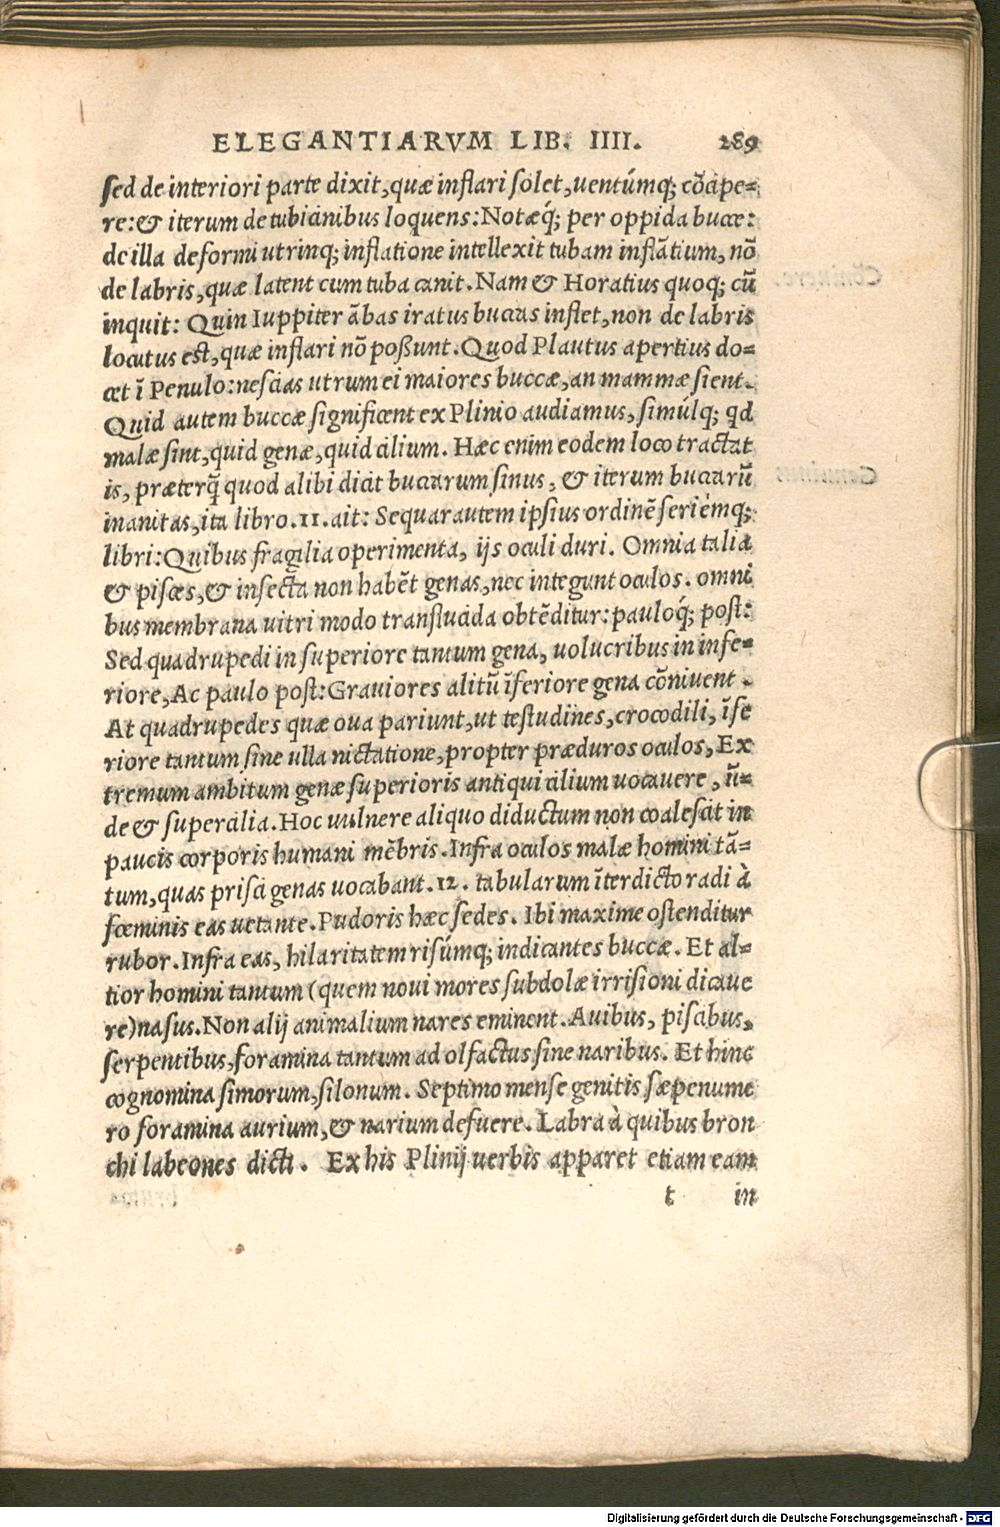 ELEGANTIARVM LIB. IIII. 289
sed de interiori parte dixit, quæ inflari solet, uentúmq; cōcipe=
re: & iterum de tubicinibus loquens: Notæq́; per oppida buccæ:
de illa deformi utrinq; inflatione intellexit tubam inflātium, nō
de labris, quæ latent cum tuba canit. Nam & Horatius quoq; cū
inquit: Quin Iuppiter ābas iratus buccas inflet, non de labris
locutus est, quæ inflari nō poßunt. Quod Plautus apertius do=
cet ī Penulo: nescias utrum ei maiores buccæ, an mammæ sient.
Quid autem buccæ significent ex Plinio audiamus, simúlq; qd
malæ sint, quid genæ, quid cilium. Hæc enim eodem loco tractat
is, præterq̄ quod alibi dicit buccarum sinus, & iterum buccarū
inanitas, ita libro .11. ait: Sequar autem ipsius ordinē seriémq;
libri: Quibus fragilia operimenta, ijs oculi duri. Omnia talia
& pisces, & insecta non habēt genas, nec integunt oculos. omni
bus membrana uitri modo translucida obtēditur: pauloq́; post:
Sed quadrupedi in superiore tantum gena, uolucribus in infe=
riore, Ac paulo post: Grauiores alitū īferiore gena cōniuent.
At quadrupedes quæ oua pariunt, ut testudines, crocodili, īfe
riore tantum sine ulla nictatione, propter præduros oculos, Ex
tremum ambitum genæ superioris antiqui cilium uocauere, ū=
de & supercilia. Hoc uulnere aliquo diductum non coalescit in
paucis corporis humani mēbris. Infra oculos malæ homini tā=
tum, quas prisci genas uocabant. 12. tabularum īterdicto radi à
fœminis eas uetante. Pudoris hæc sedes. Ibi maxime ostenditur
rubor. Infra eas, hilaritatem risúmq; indicantes buccæ. Et al=
tior homini tantum (quem noui mores subdolæ irrisioni dicaue
re) nasus. Non alij animalium nares eminent. Auibus, piscibus,
serpentibus, foramina tantum ad olfactus sine naribus. Et hinc
cognomina simorum, silonum. Septimo mense genitis sæpenume
ro foramina aurium, & narium defuere. Labra à quibus bron
chi labeones dicti. Ex his Plinij uerbis apparet etiam eam
t in
Digitalisierung gefördert durch die Deutsche Forschungsgemeinschaft - DFG